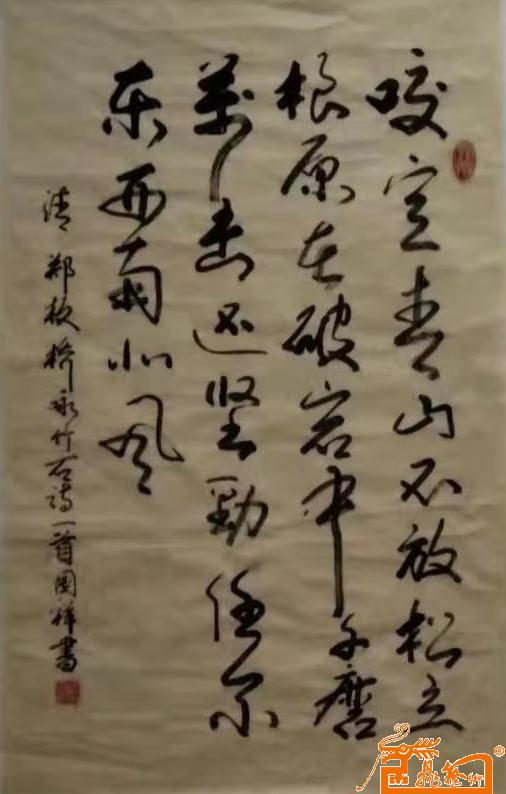 咬定青山不放松立
根原在破岩中千磨
萬击还坚劲任尔
东西南北风
清郑板桥咏竹石诗一首国祥書